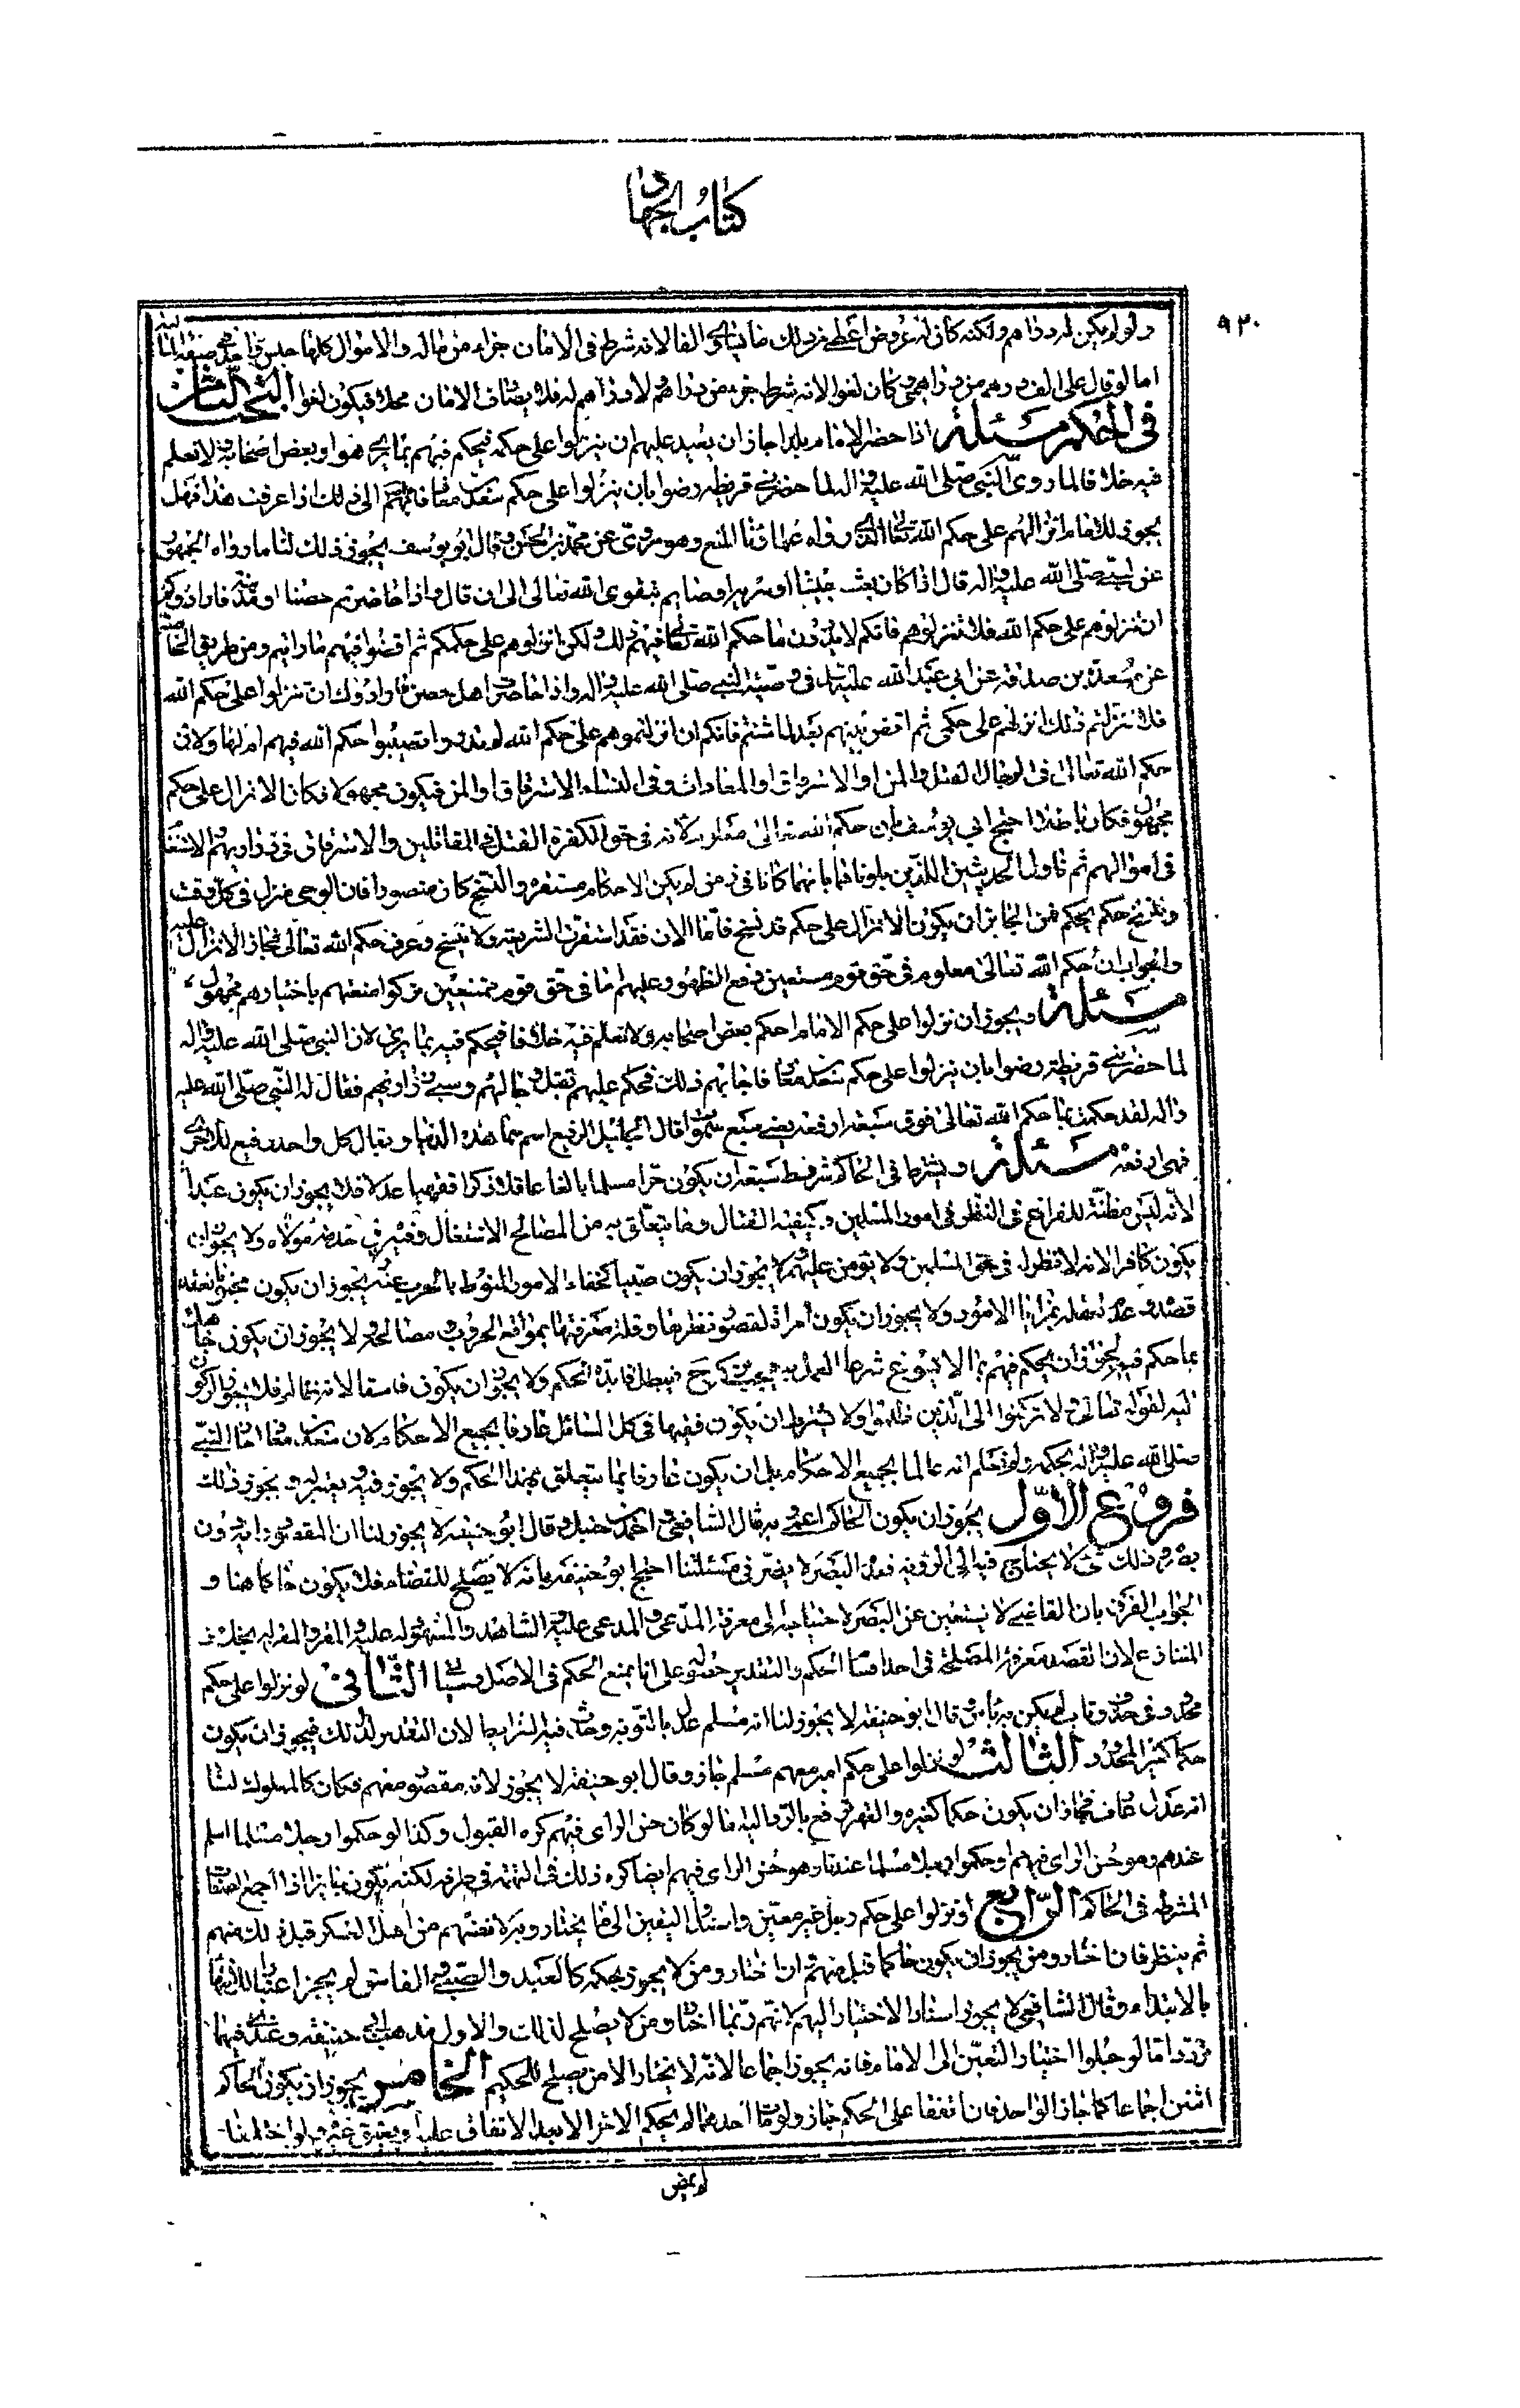 كتاب الجهاد
٩٢٠
ولو لم يكن له دراهم ولكنه كان له عروض اعطى من ذلك ما يساوى الفا لانه شرط فى الامان جزاء من ماله والاموال كلها جنس
اما لو قال على الف درهم من دراهمى كان لغوا لانه شرط جزء من دراهمه ولا دراهم له فلا يصادف الامان محلا فيكون لغوا البحث الثالث
فى التحكيم مسئلة اذا حضر الامام بلدا جاز ان يعقد عليهم ان ينزلوا على حكمه فيحكم فيهم بما يرى هو او بعض اصحابه لا نعلم
فيه خلافا لما روى ان النبى صلى الله عليه واله لما حضر بنى قريظة رضوا بان ينزلوا على حكم سعد بن معاذ فاجابهم الى ذلك اذا عرفت هذا فهل
يجوز للامام انزالهم على حكم الله تعالى الذى رواه علماؤنا المنع وهو مروى عن محمد بن الحسن وقال ابو يوسف يجوز ذلك لنا ما رواه الجمهور
عن النبى صلى الله عليه واله قال اذا كان بعث جيشا او سرية اوصاهم بتقوى الله تعالى الى ان قال واذا حاضرتم حصنا او مدينة فارادوكم
ان تنزلوهم على حكم الله فلا تنزلوهم فانكم لا تدرون ما حكم الله تعالى فيهم ذلك ولكن انزلوهم على حكمكم ثم اقضوا فيهم ما رايتم ومن طريق الخاصة
عن مسعدة بن صدقة عن ابى عبد الله عليه السلام فى وصية النبى صلى الله عليه واله واذا حاضرت اهل حصن فارادوك ان تنزلوا على حكم الله
فلا تنزلهم ولكن انزلهم على حكمى ثم اقض فيهم بعد لما شئتم فانكم ان انزلتموهم على حكم الله لم تدروا تصيبوا حكم الله فيهم ام لا ولان
حكم الله تعالى فى الرجال القتل والمن او الاسترقاق او المفادات وفى النساء الاسترقاق او المن فيكون مجهولا فكان الانزال على حكم
مجهول فكان باطلا احتج ابى يوسف بان حكم الله تعالى معلوم لانه فى حق الكفرة القتل فى المقاتلين والاسترقاق فى ذراريهم
فى اموالهم ثم تاول الحديثين اللذين تلوناهما بانهما كانا فى زمن لم يكن الاحكام مستقرة والنسخ كان متصورا فان الوحى منزل فى كل وقت
وينسخ حكم بحكم فمن الجائز ان يكون الانزال على حكم قد نسخ فاما الان فقد استقرت الشريعة ولا ينسخ وعرف حكم الله تعالى فجاز الانزال عليه
والجواب ان حكم الله تعالى معلوم فى حق قوم وقع الظهور عليهم اما فى حق قوم ممتنعين تركوا منعتهم باختيارهم مجهول
مسئلة ويجوز ان نزلوا على حكم الامام او حكم بعض اصحابه ولا نعلم فيه خلافا فيحكم فيهم بما يرى لان النبى صلى الله عليه واله
لما حضر بنى قريظة رضوا بان ينزلوا على حكم سعد بن معاذ فاجابهم ذلك فحكم عليهم بقتل رجالهم وسبى ذراريهم فقال له النبى صلى الله عليه
واله لقد حكمت بما حكم الله تعالى فوق سبعة ارقعة يعنى سبع سموات قال الخليل الرقيع اسم سماء هذه الدنيا ويقال كل واحد رقيع للاخرى
فهى ارقعة مسئلة ويشترط فى الحاكم شروط سبعة ان يكون حرا مسلما بالغا عاقلا ذكرا فقيها عدلا فلا يجوز ان يكون عبدا
لانه ليس مظنة للفراغ فى النظر فى امور المسلمين وكيفية القتال وما يتعلق به من المصالح لاشتغال وقته فى خدمة مولاه ولا يجوز ان
يكون كافرا لانه لا نظر له فى حق المسلمين ولا يؤمن عليهم ولا يجوز ان يكون صبيا لخفاء الامور المنوط بالحرب عنه ولا يجوز ان يكون مجنونا
الامور ولا يجوز ان يكون امراة لقصور نظرها وقلة معرفتها بمواقع الحروب ومصالحه ولا يجوز ان يكون جاهلا
بما حكم فيه لجواز ان يحكم فيهم بما لا يسوغ شرعا العمل به فيبطل فائدة الحكم ولا يجوز ان يكون فاسقا لانه ظالم فلا يجوز الركون
اليه لقوله تعالى ولا تركنوا الى الذين ظلموا ولا يشترط ان يكون فقيها فى كل المسائل عارفا بجميع الاحكام لان سعد بن معاذ النبى
صلى الله عليه واله بحكمه ولم نعلم انه عالما بجميع الاحكام بل ان يكون عارفا بما يتعلق بهذا الحكم وما يجوز فيه ويعتبر له ويجوز ذلك
فروع الاول يجوز ان يكون الحاكم اعمى وبه قال الشافعى واحمد بن حنبل وقال ابو حنيفة لا يجوز لنا ان المقصود رايه دون
بصره ذلك شئ لا يحتاج فيه الى الرؤية فعدم البصر لا يضر فى مسئلتنا احتج ابو حنيفة بانه لا يصلح للقضاء فلا يكون حاكما هنا و
الجواب الفرق بان القاضى لا يستغنى عن البصر لاحتياجه الى معرفة المدعى والمدعى عليه والشاهد والمشهود له وعليه والمقر والمقر له بخلاف
المتنازع لان القصد معرفة المصلحة فى احد اقسام الحكم والتقدير حصوله على انا نمنع الحكم فى الاصل وسياتى الثانى لو نزلوا على حكم
محدود فى قذف وتاب لم يكن به باس وقال ابو حنيفة لا يجوز لنا انه مسلم عدل بالتوبة وحدثت فيه الشرائط لان التقدير ذلك فيجوز ان يكون
حكما كغير المحدود الثالث لو نزلوا على حكم اسير معهم مسلم جاز وقال ابو حنيفة لا يجوز لانه مقهور معهم فكان كالمملوك لنا
انه عدل فجاز ان يكون حكما كغيره والقهر يرتفع بالرد اليه فاما لو كان حسن الراى فيهم كره القبول وكذا لو حكموا رجلا مسلما اسلم
عندهم وهو حسن الراى فيهم او حكموا رجلا مسلما عندنا وهو حسن الراى فيهم ايضا كره ذلك فى التهمة فى طرفه لكنه يكون جائزا اذا اجمع الصفات
المشرطة فى الحاكم الرابع لو نزلوا على حكم رجل غير معين واسند التعيين الى ما يختارونه لانفسهم من اهل العسكر قبل ذلك منهم
ثم ينظر فان اختاروا من يجوز ان يكون حاكما قبل منهم وان اختاروا من لا يجوز حكمه كالعبد والصبى والفاسق لم يجز اعتبارا للانتهاء
بالابتداء وقال الشافعى لا يجوز اسناد الاختيار اليهم لانهم ربما اختاروا من لا يصلح لذلك والاول مذهب ابى حنيفة وعندى فيهما
تردد اما لو جعلوا اختيار التعين الى الامام فانه يجوز اجماعا لانه لا يختار الا من يصلح للتحكيم الخامس يجوز ان يكون الحاكم
اثنين اجماعا كما جاز الواحد فان اتفقا على الحكم جاز ولو مات احدهما لم يحكم الاخر الا بعد الاتفاق عليه ولو اختلفا
لم يمض